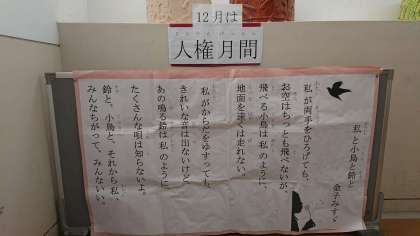 12月は
人権月間
私と小鳥と鈴と
金子みすゞ
私が両手をひろげても、
お空はちっとも飛べないが、
飛べる小鳥は私のように、
地面を速くは走れない。
私がからだをゆすっても、
きれいな音は出ないけど、
あの鳴る鈴は私のように、
たくさんな唄は知らないよ。
鈴と、小鳥と、それから私、
みんなちがって、みんないい。